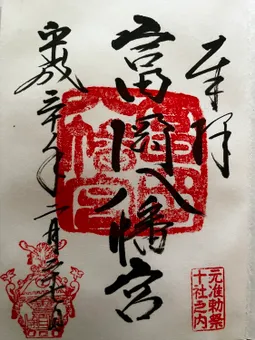 奉拝
富岡八幡宮
平成 年 月 日
元准勅祭
十社之内